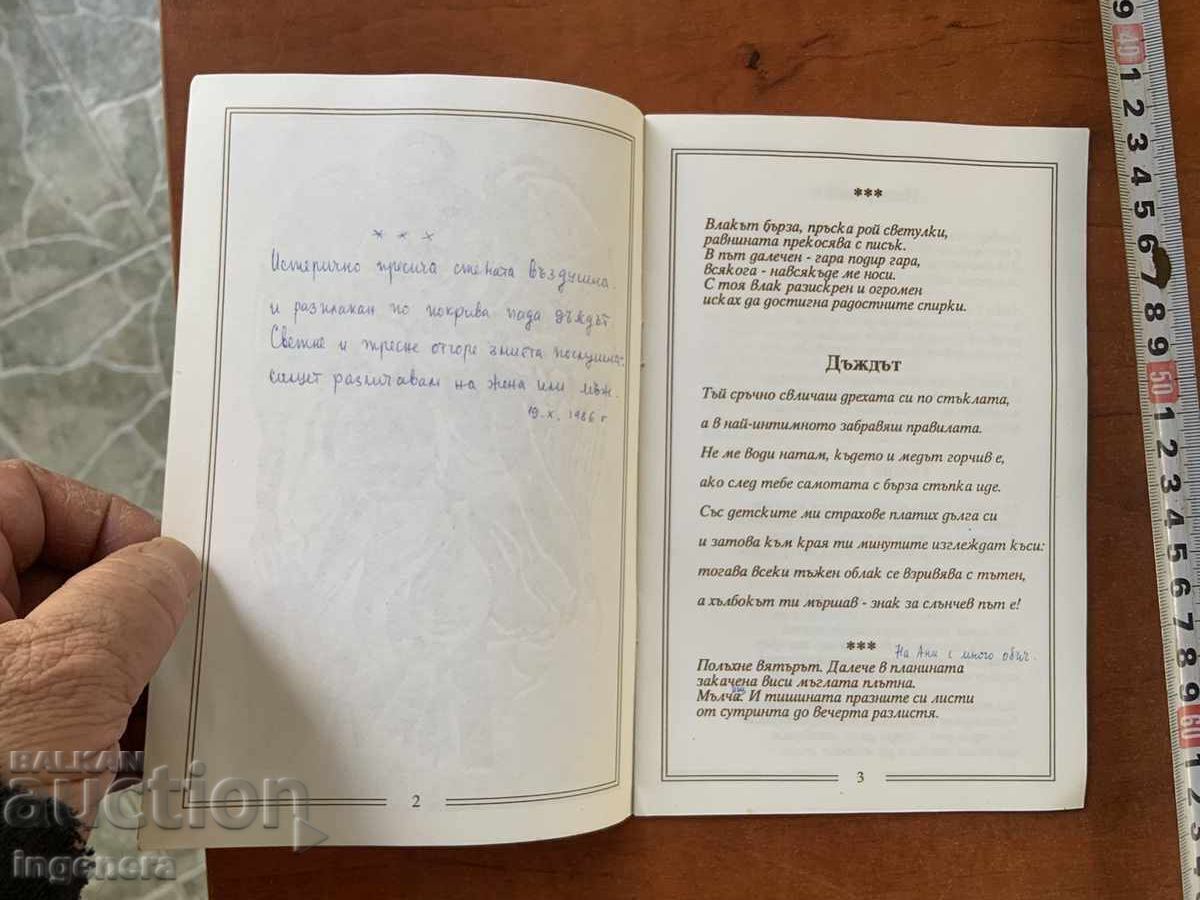 * * *
Истерично пресича стената въздушна.
и разплакан по покрива пада дъждът.
Светне и тресне отгоре
различавам на жена или мъж.
19.X. 1986 г
2
***
Влакът бърза, пръска рой светулки,
равнината прекосява с писък.
В път далечен - гара подир гара,
всякога - навсякъде ме носи.
С тоя влак разискрен и огромен
исках да достигна радостните спирки.
Дъждът
Тъй сръчно свличаш дрехата си по стъклата,
а в най-интимното забравяш правилата.
Не ме води натам, където и медът горчив е,
ако след тебе самотата с бърза стъпка иде.
Със детските ми страхове платих дълга си
и затова към края ти минутите изглеждат къси:
тогава всеки тъжен облак се взривява с тътен,
а хълбокът ти мършав - знак за слънчев път е!
*** На Ани с много обич.
Полъхне вятърът. Далече в планината
закачена виси мъглата плътна.
Мълча. И тишината празните си листи
от сутринта до вечерта разлистя.
3
BALKAN
auction
ingenera
9 40 1 2 3 4 5 6 7 8 9 50 1 2 3 4 5 6 7 8 9 60 1 2